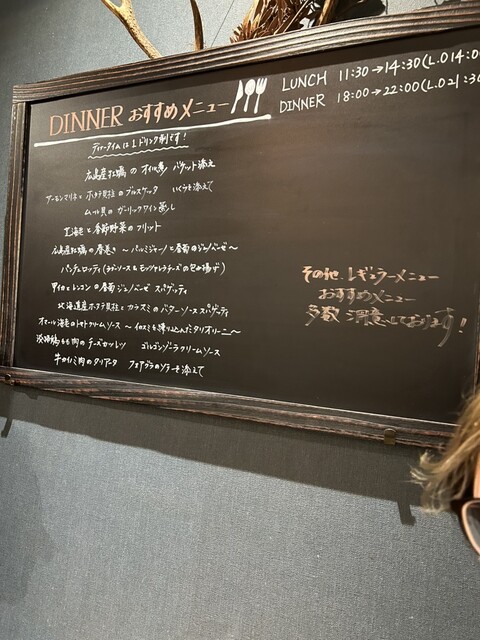 LUNCH 11:30→14:30(L.O14:00
DINNER 18:00→22:00(L.O21:30
DINNER おすすめメニュー
ディナータイムは1ドリンク制です!
広島産牡蠣 の オイル煮 バケット添え
サーモンマリネと ホタテ貝柱 の ブルスケッタ いくらを添えて
ムール貝 の ガーリックワイン蒸し
芝海老 と 季節野菜 の フリット
広島産牡蠣 の 春巻き 〜 パルミジャーノと春菊のジェノベーゼ 〜
パンツェロッティ(ラグーソースとモッツァレラチーズの包み揚げ)
とレンコン の 春菊ジェノベーゼ スパゲティ
北海道産ホタテ貝柱と カラスミ の バターソース スパゲティ
オマール海老のトマトクリームソース 〜 イカスミを練り込んだタリオリーニ 〜
淡路鶏もも肉 の チーズカツレツ ゴルゴンゾーラクリームソース
牛カイノミ肉 の タリアータ フォアグラのソテーを添えて
その他 レギュラーメニュー
おすすめメニュー
多数ご用意しております!